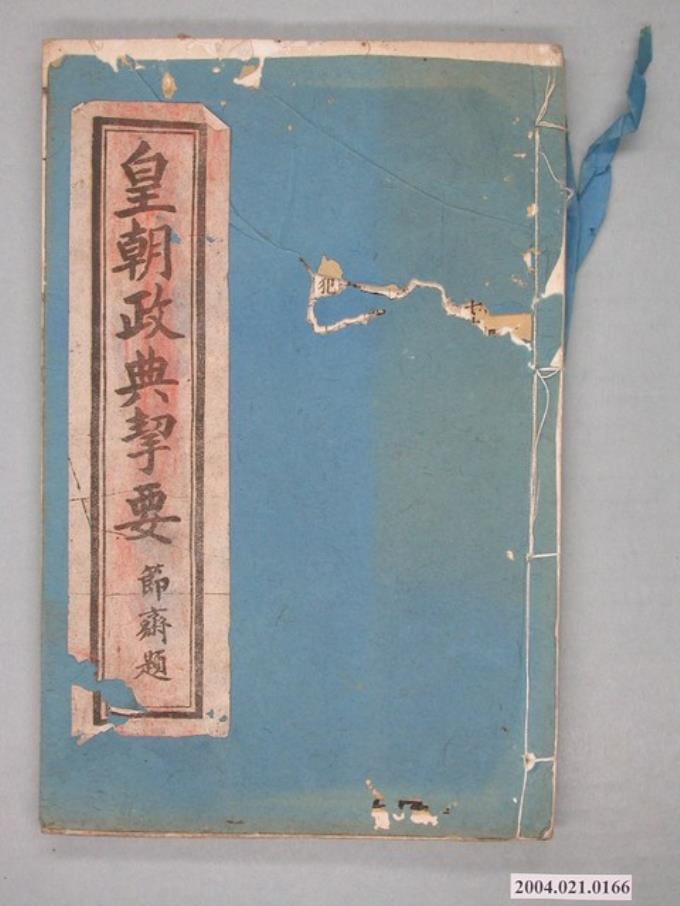 皇朝政典挈要
節齋題
犯
七
2004.021.0166